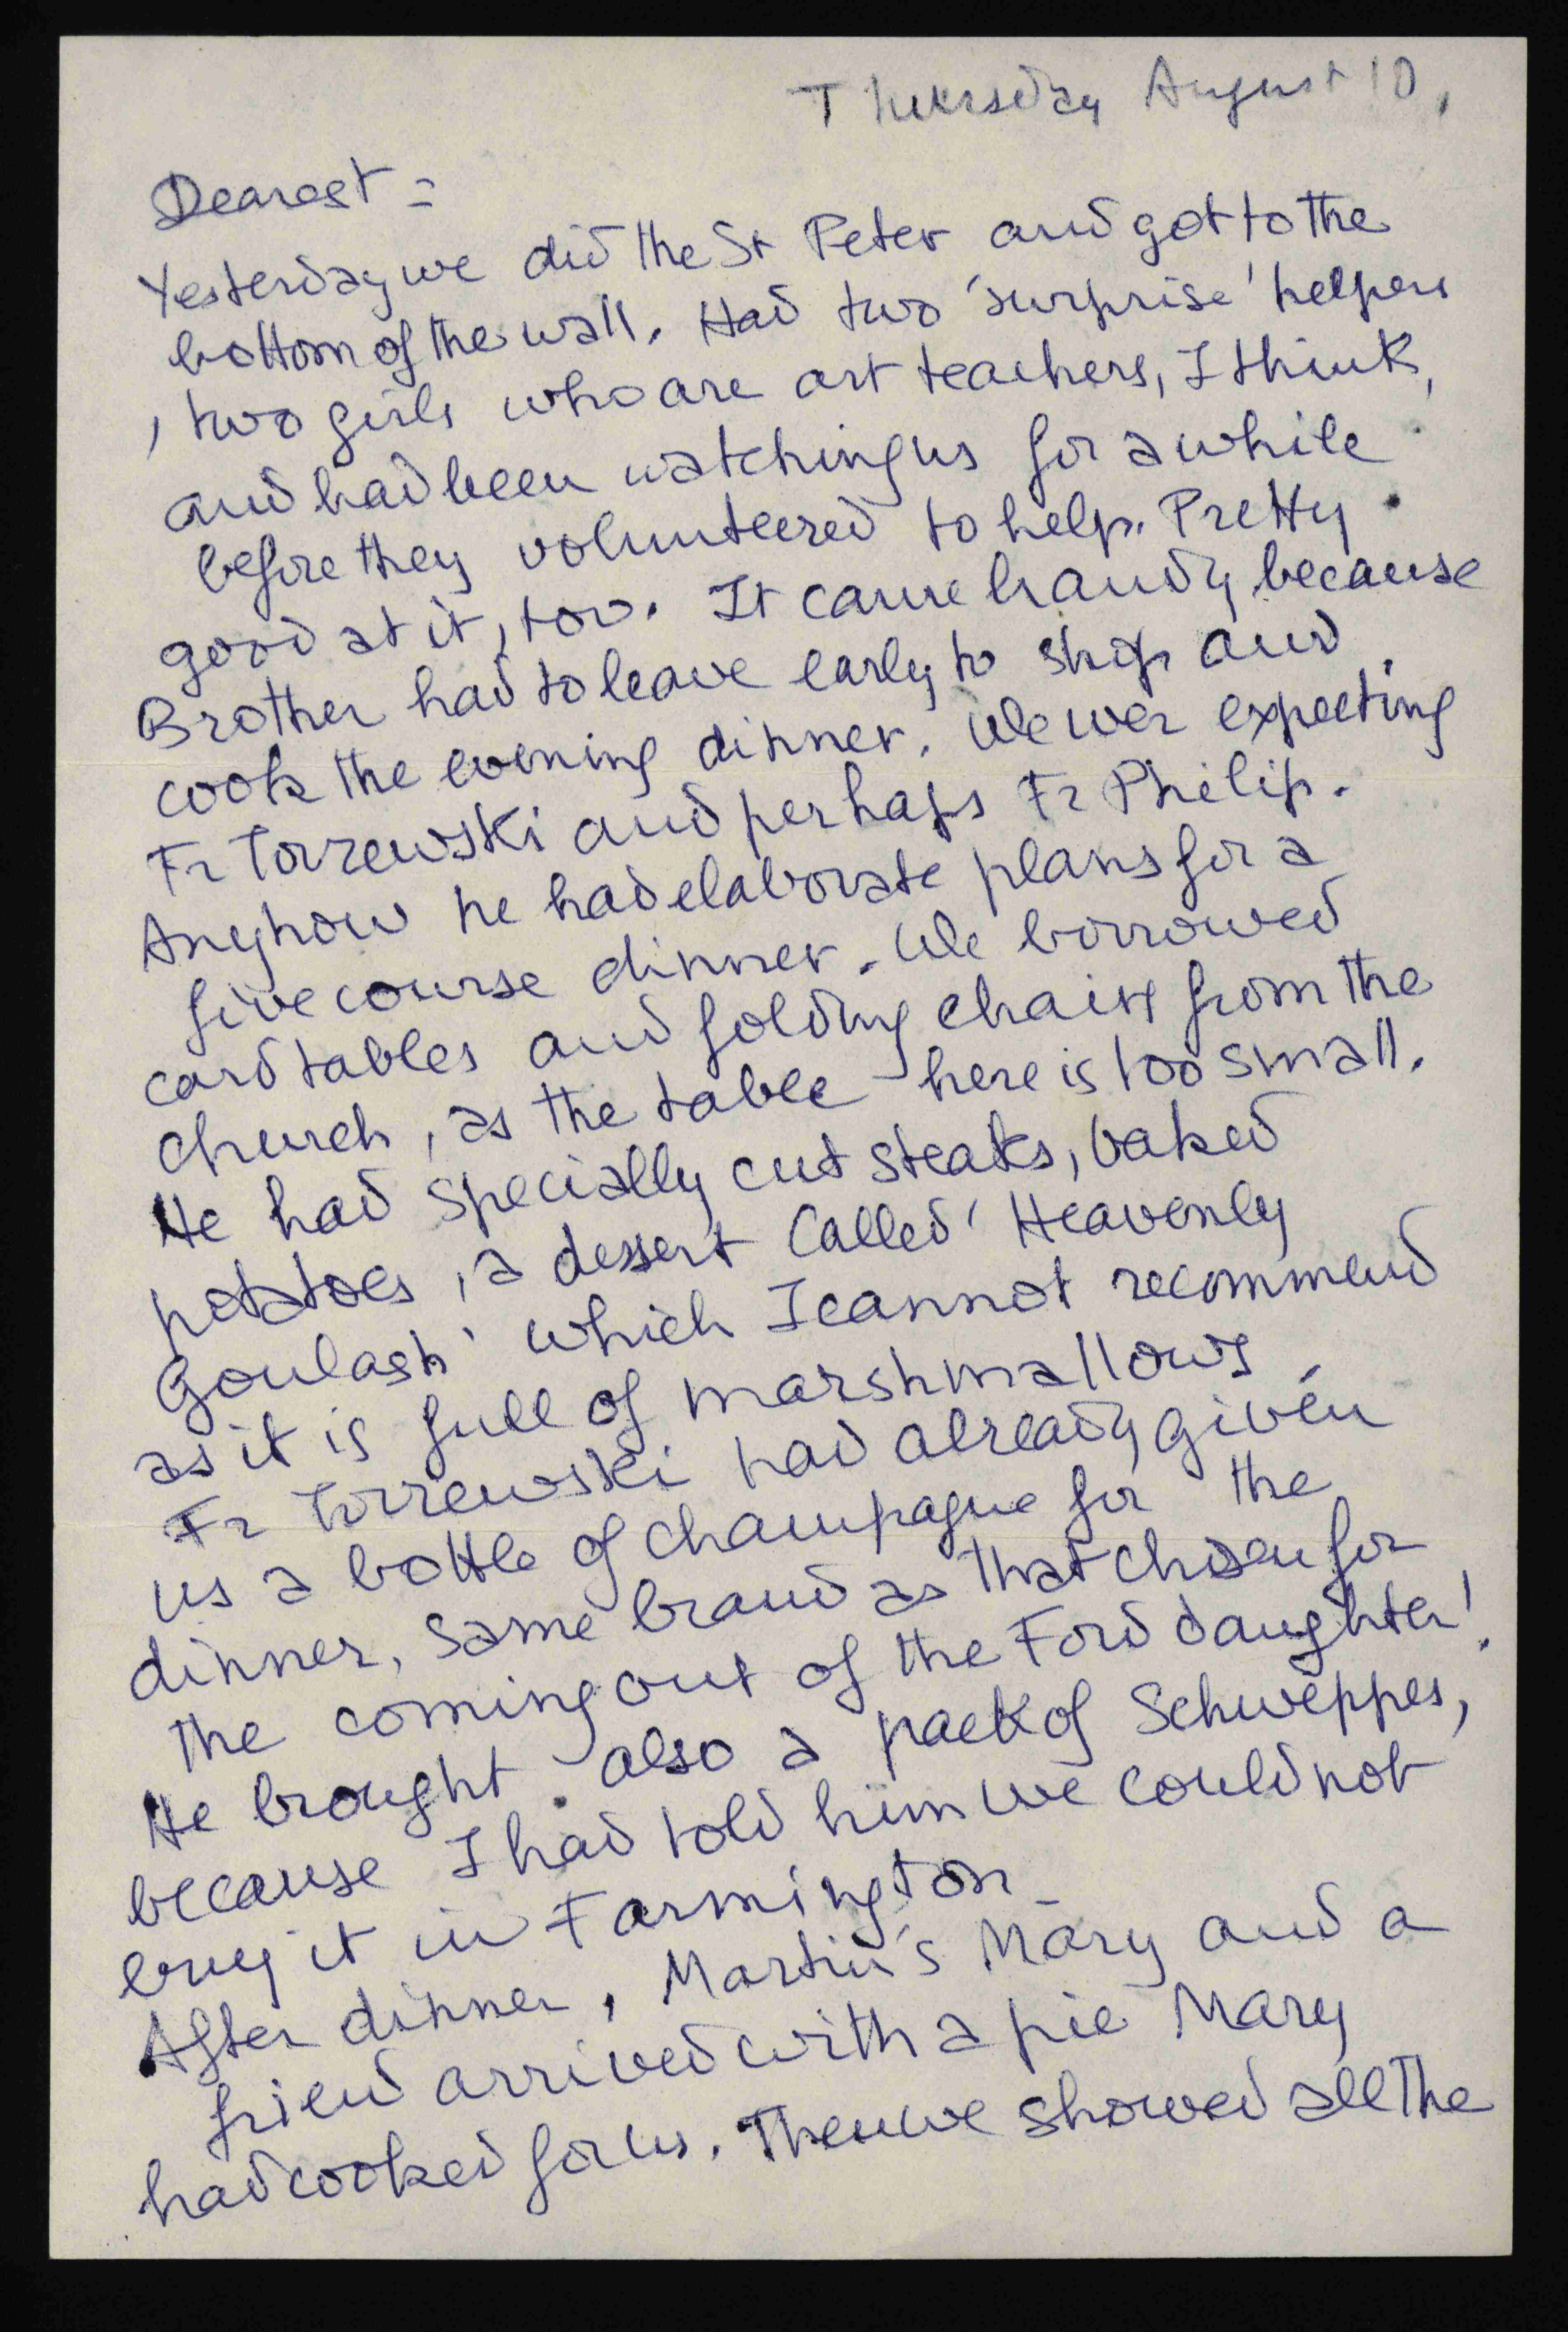 Thursday August 10,
Dearest =
Yesterday we did the St Peter and got to the
bottom of the wall. Had two 'surprise' helpers
, two girls who are art teachers, I think,
and had been watching us for a while
before they volunteered to help. Pretty
good at it, too. It came handy because
Brother had to leave early to shop and
cook the evening dinner. We wer expecting
Fr Torzewski and perhaps Fr Philip.
Anyhow he had elaborate plans for a
five course dinner. We borrowed
card tables and folding chairs from the
church, as the table here is too small.
He had specially cut steaks, baked
potatoes, a dessert called 'Heavenly
Goulash' which I cannot recommend
as it is full of marshmallows.
Fr Torzewski had already given
us a bottle of champagne for the
dinner, same brand as that chosen for
the coming out of the Ford daughter!
He brought also a pack of Schweppes,
because I had told him we could not
buy it in Farmington
After dinner, Martin's Mary and a
friend arrived with a pie Mary
had cooked for us. Then we showed all the